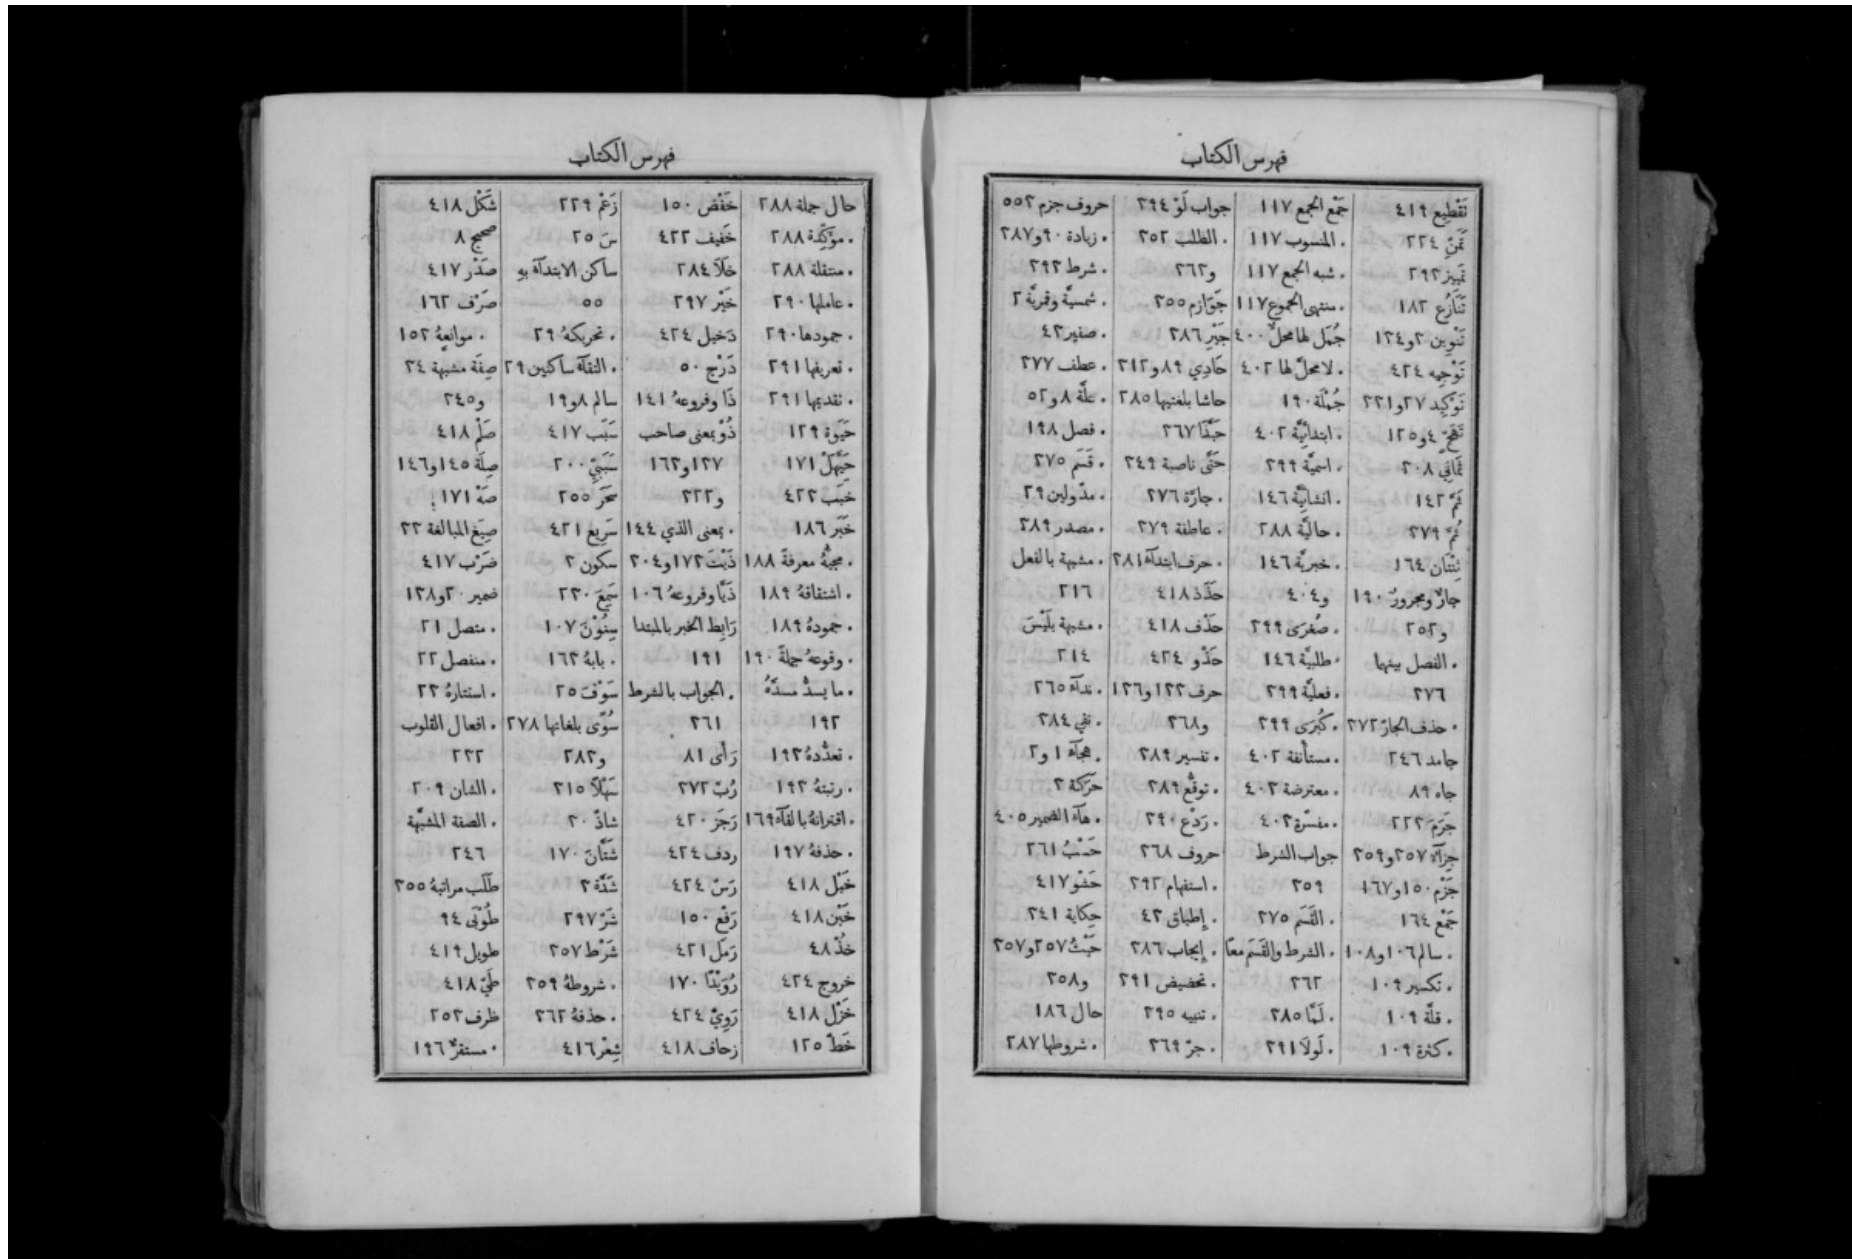 فهرس الكتاب
تَقْطِيع ٤١٩
ثَمَنْ ٢٢٤
تمييز ٢٩٢
تَنَازُع ١٨٢
تَنْوِين ٢و١٢٤
تَوْجِيه ٤٢٤
تَوْكِيد ٢٧و٢٢١
تَهَجٍّ ٤و١٢٥
ثَمَانِي ٢٠٨
ثَمَّ ١٤٢
ثُمَّ ٢٧٩
ثِنْتَان ١٦٤
جارّ ومجرورٌ ١٩٠
و٢٥٢
. الفصل بينهما
٢٧٦
. حذف الجارّ ٢٧٢
جامد ٢٤٦
جاه ٨٩
جَرَمَ ٢٢٢
جزآء ٢٥٧و٢٥٩
جَزْم ١٥٠و١٦٧
جَمْع ١٦٤
. سالم ١٠٦و١٠٨
. تكسير ١٠٩
. قلَّة ١٠٩
. كثرة ١٠٩
جَمْع الجمع ١١٧
. المنسوب ١١٧
. شبه الجمع ١١٧
. منتهى الجموع ١١٧
جُمَل لها محلٌّ ٤٠٠
. لا محلَّ لها ٤٠٢
جُمْلَة ١٩٠
. ابتدائيَّة ٤٠٢
. اسميَّة ٢٩٩
. انشائيَّة ١٤٦
. حاليَّة ٢٨٨
. خبريَّة ١٤٦
و٤٠٤
. صُغرَى ٢٩٩
. طلبيَّة ١٤٦
. فعليَّة ٢٩٩
. كُبرَى ٢٩٩
. مستأنفة ٤٠٢
. معترضة ٤٠٢
. مفسّرة ٤٠٢
جواب الشرط
٢٥٩
. القَسَم ٢٧٥
. الشرط والقَسَم معًا
٢٦٢
. لَمَّا ٢٨٥
. لَولَا ٢٩١
جواب لَوْ ٢٩٤
. الطلب ٢٥٢
و٢٦٢
جَوَازم ٢٥٥
جَيْرِ ٢٨٦
حَادِي ٨٩و٢١٢
حاشا بلغتيها ٢٨٥
حَبَّذَا ٢٦٧
حَتَّى ناصبة ٢٤٩
. جارّة ٢٧٦
. عاطفة ٢٧٩
. حرف ابتدآء ٢٨١
حَذَذ ٤١٨
حَذْف ٤١٨
حَذْو ٤٢٤
حرف ١٢٢و١٢٦
و٢٦٨
. تفسير ٢٨٩
. توقُّع ٢٨٩
. رَدْع ٢٩٠
حروف ٢٦٨
. استفهام ٢٩٢
. إِطباق ٤٢
. إِيجاب ٢٨٦
. تحضيض ٢٩١
. تنبيه ٢٩٥
. جرّ ٢٦٩
حروف جزم ٥٥٢
. زيادة ٩٠و٢٨٧
. شرط ٢٩٢
. شمسيَّة وقمريَّة ٢
. صفير ٤٢
. عطف ٢٧٧
. علَّة ٨و٥٢
. فصل ١٩٨
. قَسَم ٢٧٥
. مدّ ولين ٢٩
. مصدر ٢٨٩
. مشبهة بالفعل
٢١٦
. مشبهة بلَيْسَ
٢١٤
. ندآء ٢٦٥
. نفي ٢٨٤
. هجآء ١و٢
حَرَكة ٢
. هآء الضمير ٤٠٥
حَسْبُ ٢٦١
حَشْو ٤١٧
حِكاية ٢٤١
حَيْثُ ٢٥٧و٢٥٧
و٢٥٨
حال ١٨٦
. شروطها ٢٨٧
فهرس الكتاب
حال جملة ٢٨٨
. مؤكِّدة ٢٨٨
. منتقلة ٢٨٨
. عاملها ٢٩٠
. جمودها ٢٩٠
. تعريفها ٢٩١
. تقديمها ٢٩١
حَيَوة ١٢٩
حَيَّهَلْ ١٧١
خبَب ٤٢٢
خَبَر ١٨٦
. مجيئهُ معرفةً ١٨٨
. اشتقاقهُ ١٨٩
. جمودهُ ١٨٩
. وقوعهُ جملةً ١٩٠
. ما يسدُّ مسدَّهُ
١٩٢
. تعدُّدهُ ١٩٢
. رتبتهُ ١٩٢
. اقترانهُ بالفآء ١٦٩
. حذفهُ ١٩٧
خَبْل ٤١٨
خَبْن ٤١٨
خُذْ ٤٨
خروج ٤٢٤
خَزْل ٤١٨
خَطّ ١٢٥
خَفْض ١٥٠
خَفيف ٤٢٢
خَلَا ٢٨٤
خَيْر ٢٩٧
دَخيل ٤٢٤
دَرْج ٥٠
ذَا وفروعهُ ١٤١
ذُو بمعنى صاحب
١٢٧و١٦٢
و٢٢٢
. بمعنى الذي ١٤٤
ذَيْتَ ١٧٢و٢٠٤
ذَيَّا وفروعهُ ١٠٦
رَابِط الخبر بالمبتدا
١٩١
. الجواب بالشرط
٢٦١
رَأَى ٨١
رُبَّ ٢٧٢
رَجَز ٤٢٠
ردف ٤٢٤
رَسّ ٤٢٤
رَفْع ١٥٠
رَمَل ٤٢١
رُوَيْدًا ١٧٠
رَوِيّ ٤٢٤
زحاف ٤١٨
زَعَمْ ٢٢٩
سَ ٢٥
ساكن الابتدآء بهِ
٥٥
. تحريكهُ ٢٩
. التقآء ساكنين ٢٩
سالم ٨و١٩
سَبَب ٤١٧
سَبَبِيّ ٢٠٠
سَحَر ٢٥٥
سَرِيع ٤٢١
سكون ٢
سَمِعَ ٢٢٠
سِنُوْنَ ١٠٧
. بابهُ ١٦٢
سَوْفَ ٢٥
سُوًى بلغاتها ٢٧٨
و٢٨٢
سَهْلًا ٢١٥
شاذّ ٢٠
شَتَّانَ ١٧٠
شَدَّة ٢
شَرّ ٢٩٧
شَرْط ٢٥٧
. شروطهُ ٢٥٩
. حذفهُ ٢٦٢
شِعْر ٤١٦
شَكْل ٤١٨
صحيح ٨
صَدْر ٤١٧
صَرْف ١٦٢
. موانعهُ ١٥٢
صِفَة مشبهة ٢٤
و٢٤٥
صَلْم ٤١٨
صِلَة ١٤٥و١٤٦
صَهْ ١٧١
صِيَغ المبالغة ٢٢
ضَرْب ٤١٧
ضمير ٢٠و١٢٨
. متصل ٢١
. منفصل ٢٢
. استتارهُ ٢٢
. افعال القلوب
٢٢٢
. الشان ٢٠٩
. الصفة المشبَّهة
٢٤٦
طَلَب مراتبهُ ٢٥٥
طُوْبَى ٩٤
طويل ٤١٩
طَيّ ٤١٨
ظرف ٢٥٢
. مستقرّ ١٩٦